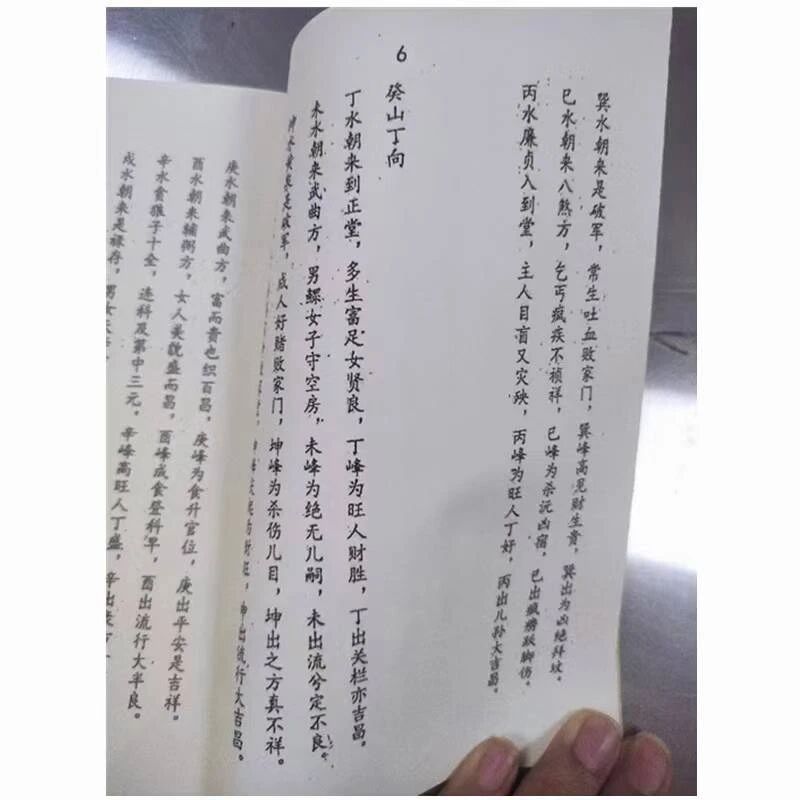 巽水朝来是破军，常生吐血败家门，巽峰高见财生贵，巽出为凶绝拜坟。
巳水朝来八煞方，乞丐疯疾不祯祥，巳峰为杀沅凶宿，巳出疯痨跃脚伤。
丙水廉贞入到堂，主人目盲又灾殃，丙峰为旺人丁好，丙出儿孙大吉昌。
6
癸山丁向
丁水朝来到正堂，多生富足女贤良，丁峰为旺人财胜，丁出关栏亦吉昌。
未水朝来武曲方，男鳏女子守空房，未峰为绝无儿嗣，未出流兮定不良。
坤水黄泉是破军，成人好赌败家门，坤峰为杀伤儿目，坤出之方真不祥。
申出流行大吉昌。
庚水朝来武曲方，富而贵也织百昌，庚峰为食升官位，庚出平安是吉祥。
酉水朝来辅弼方，女人美貌盛而昌，酉峰成食登科早，酉出流行大半良。
辛水贪狼子十全，连科及第中三元，辛峰高旺人丁盛，
戌水朝来是禄存，